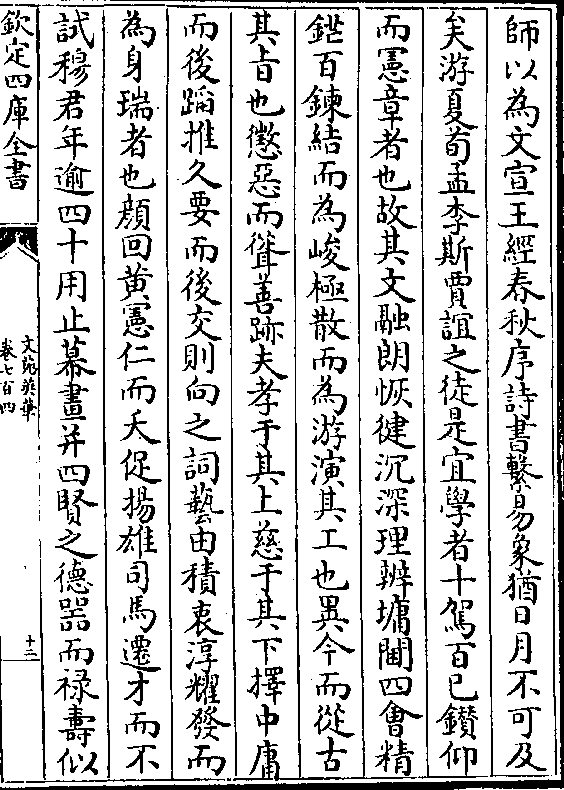 師以為文宣王經春秋序詩書繫易象猶日月不可及
矣游夏荀孟李斯賈誼之徒是宜學者十駕百已鑚仰
而憲章者也故其文融朗恢健沉深理辨墉閫四會精
鍇百鍊結而為峻極散而為游演其工也異今而從古
其㫖也懲惡而聳善跡夫孝于其上慈于其下擇中庸
而後蹈推久要而後交則向之詞藝由積衷淳耀發而
為身瑞者也顔回黄憲仁而夭促揚雄司馬遷才而不
試穆君年逾四十用止幕畫并四賢之德器而禄壽似
欽定四庫全書
文苑英華
卷七百四
十三